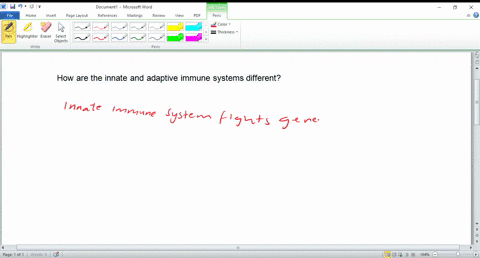 Document1 - Microsoft Word
File Home Insert Page Layout References Mailings Review View PDF Pens
Pen Highlighter Eraser Select Objects
Color
Thickness
Write Pens
How are the innate and adaptive immune systems different?
Innate immune system fights gene
Page: 1 of 1